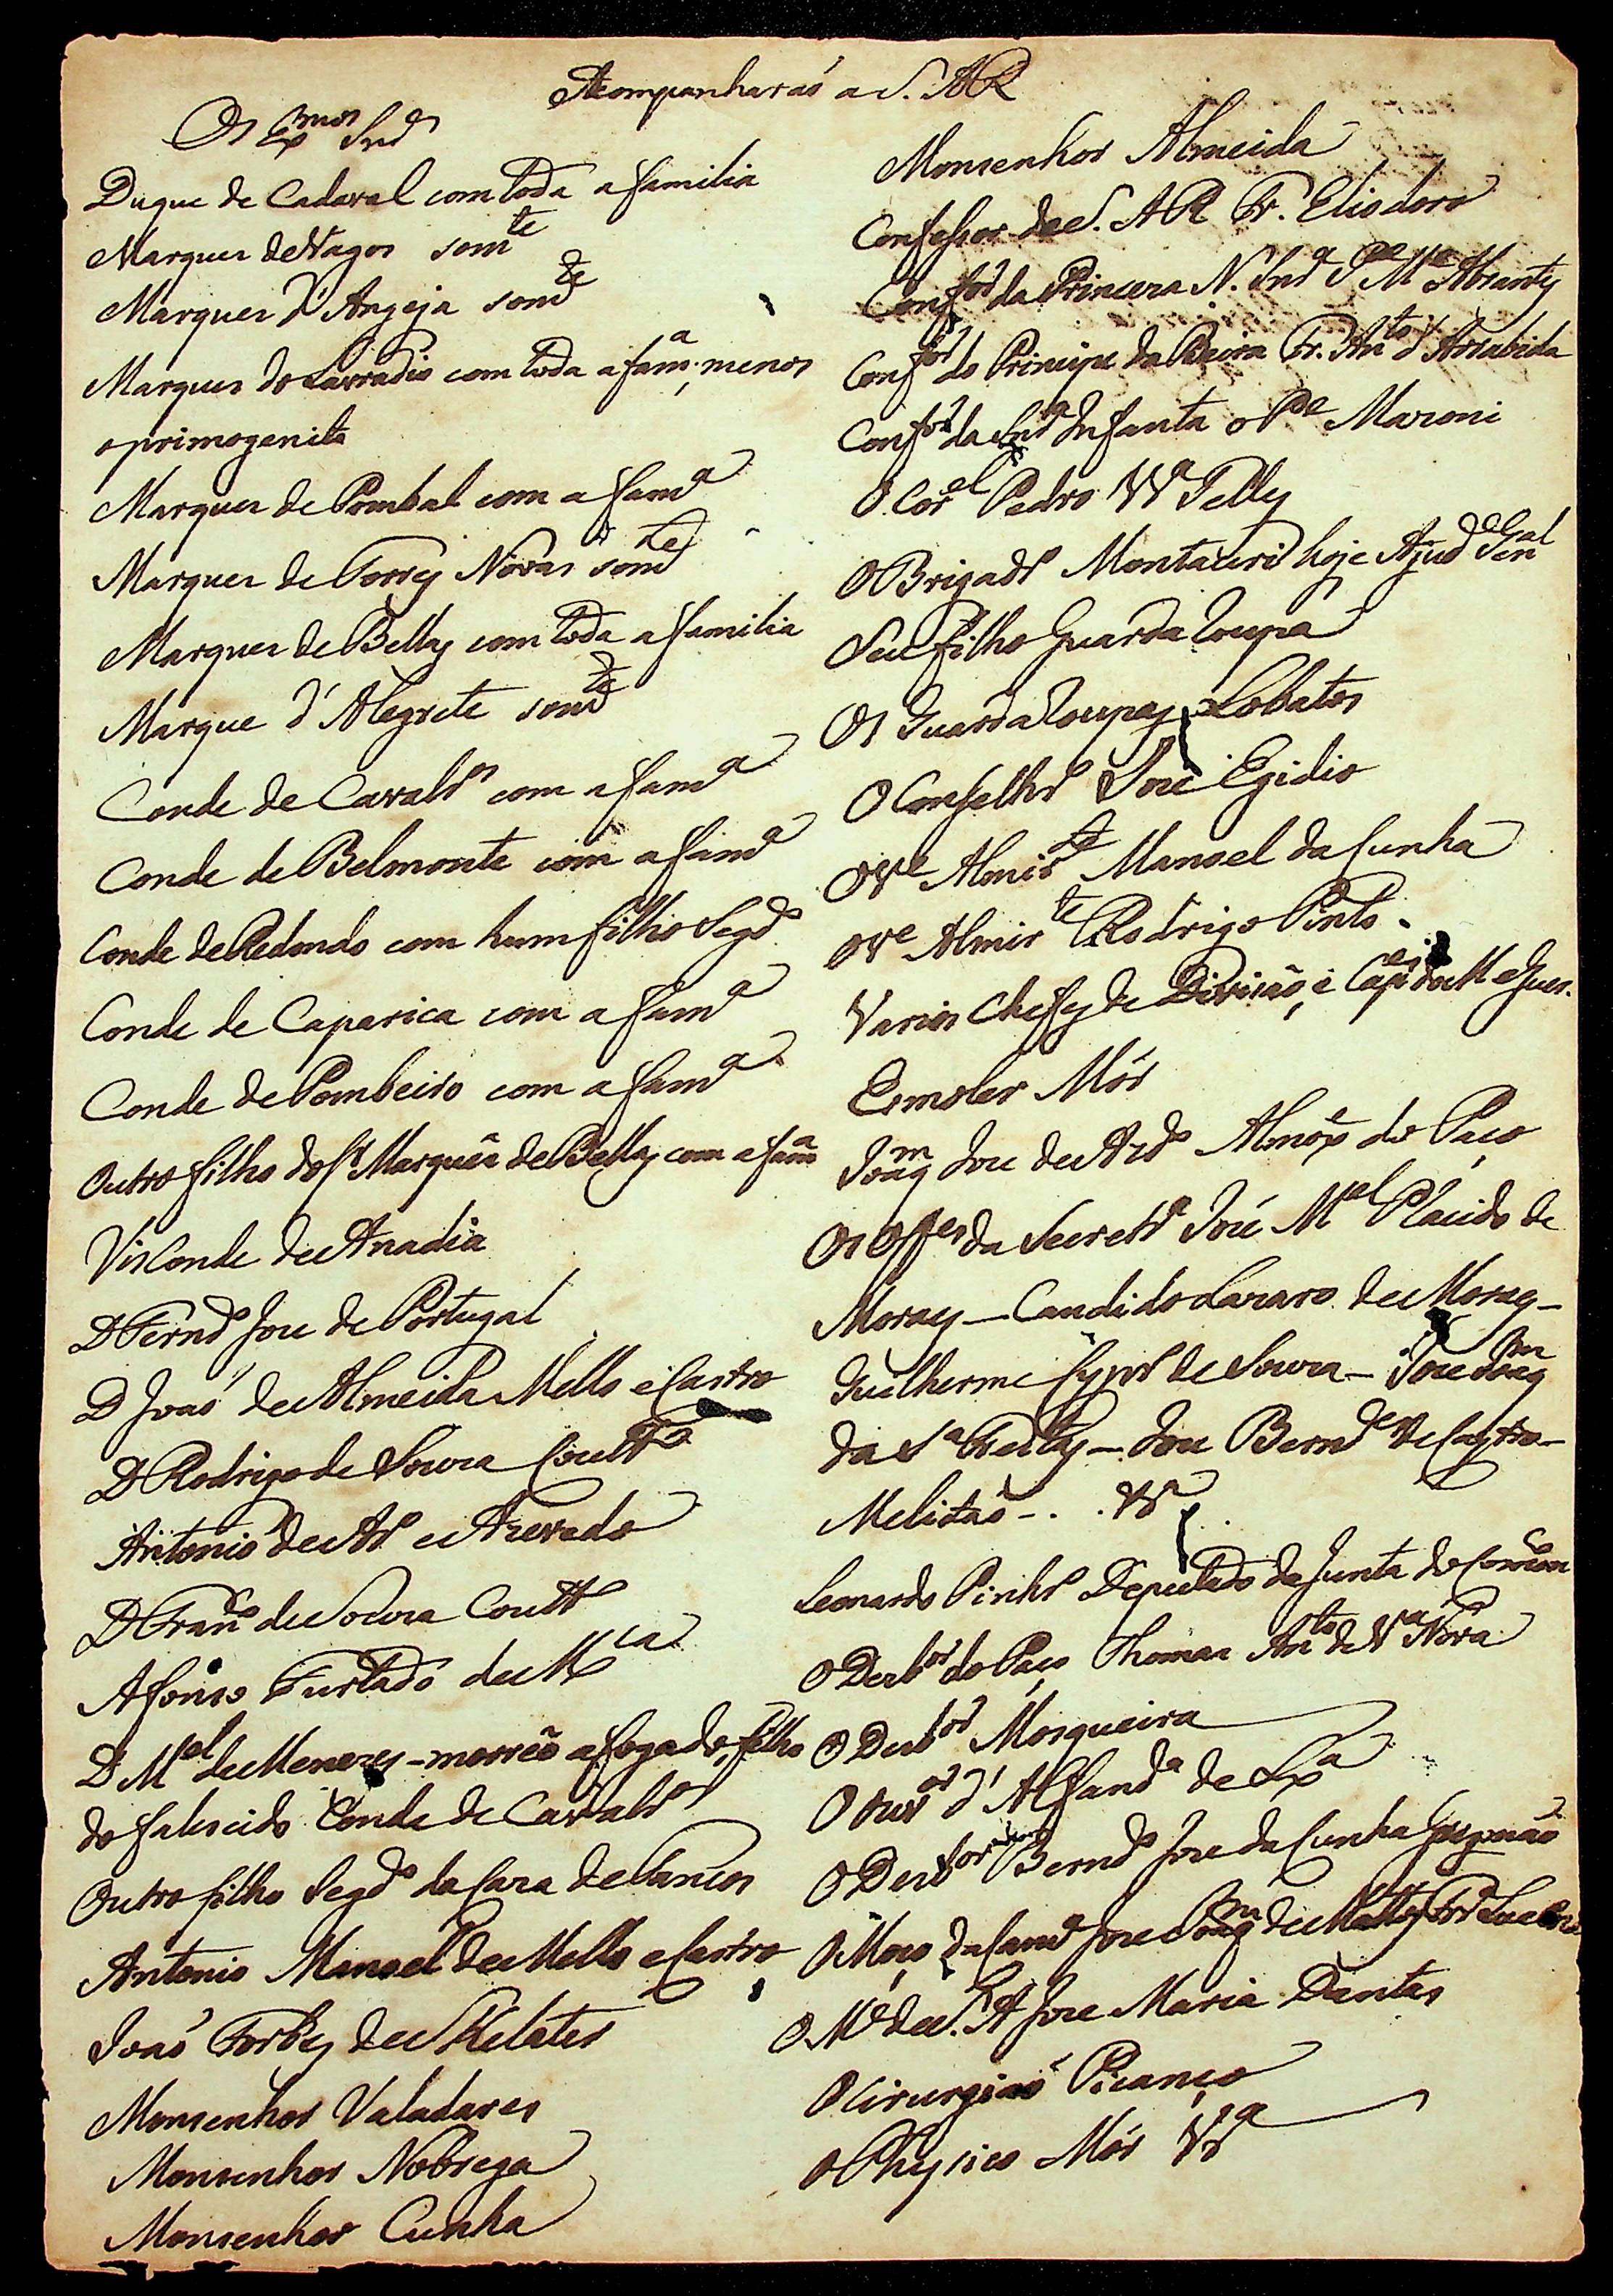 Acompanharaó a S. AR
Os Exmos Snrs
Duque de Cadaval com toda a familia
Marquez de Vagos somte
Marquez d'Angeja somte
Marquez do Lavradio com toda a fama, menos
o primogenito
Marquez de Pombal com a fama
Marquez de Torres Novas somte
Marquez de Bellas com toda a familia
Marque d'Alegrete somte
Conde de Cavalros com a fama
Conde de Belmonte com a fama
Conde de Redondo com hum filho Segdo
Conde de Caparica com a fama
Conde de Pombeiro com a fama
Outro filho do Sr Marquez de Bellas com a fama
Visconde de Anadia
D Ferndo Joze de Portugal
D Joaó de Almeida Mello e Castro
D Rodrigo de Souza Coutto
Antonio de Arº e Azevedo
D Franco de Souza Coutto
Afonso Furtado de Mça
D Mel de Menezes - morrêo afogado, filho
do falescido Conde de Cavalros
Outro filho Segdo da Caza de Sancos
Antonio Manoel de Mello e Castro
Joaó Forbes de Skelates
Monsenhor Valadares
Monsenhor Nobrega
Monsenhor Cunha
Monsenhor Almeida
Confessor de S. AR Fr. Eliodoro
Confor da Princeza N. Snra Pe Me Abrantes
Confor do Principe da Beira Fr. Anto d'Arrabida
Confor da Snra Infanta o Pe Mazoni
O Corel Pedro Vra Telles
O Brigadro Montaurÿ hoje Ajude Genal
Seu filho Guarda roupa
Os Guarda roupas Lobatos
O Conselhro Joze Egidio
O Ve Almirte Manoel da Cunha
O Ve Almirte Rodrigo Pinto.
Varios Chefes de Divizaõ, e Capes de M e Guer.
Esmoler Mór
Joaqm Joze de Azdo Almoxe do Paço
Os Offes da Secretra Joze Mel Placido de
Moraes — Candido Lazaro de Moraes —
Guilherme Cypro de Souza — Joze Joaqm
da Sa Freitas — Joze Bernde de Castro —
Melitaõ - . . Vra
Leonardo Pinhro Deputado da Junta do Comcon
O Dezbor do Paço Thomaz Anto de Va Nova
O Dezbor Mosqueira
O Ouvor d'Alfanda de Lxa
O Dezbor Berndo Joze da Cunha Gusmaõ
O Moço da Cama Joze Joaqm de Mattos
O Me de S. A Joze Maria Dantas
O Cirurgiaó Picanço
O Physico Mór Vra